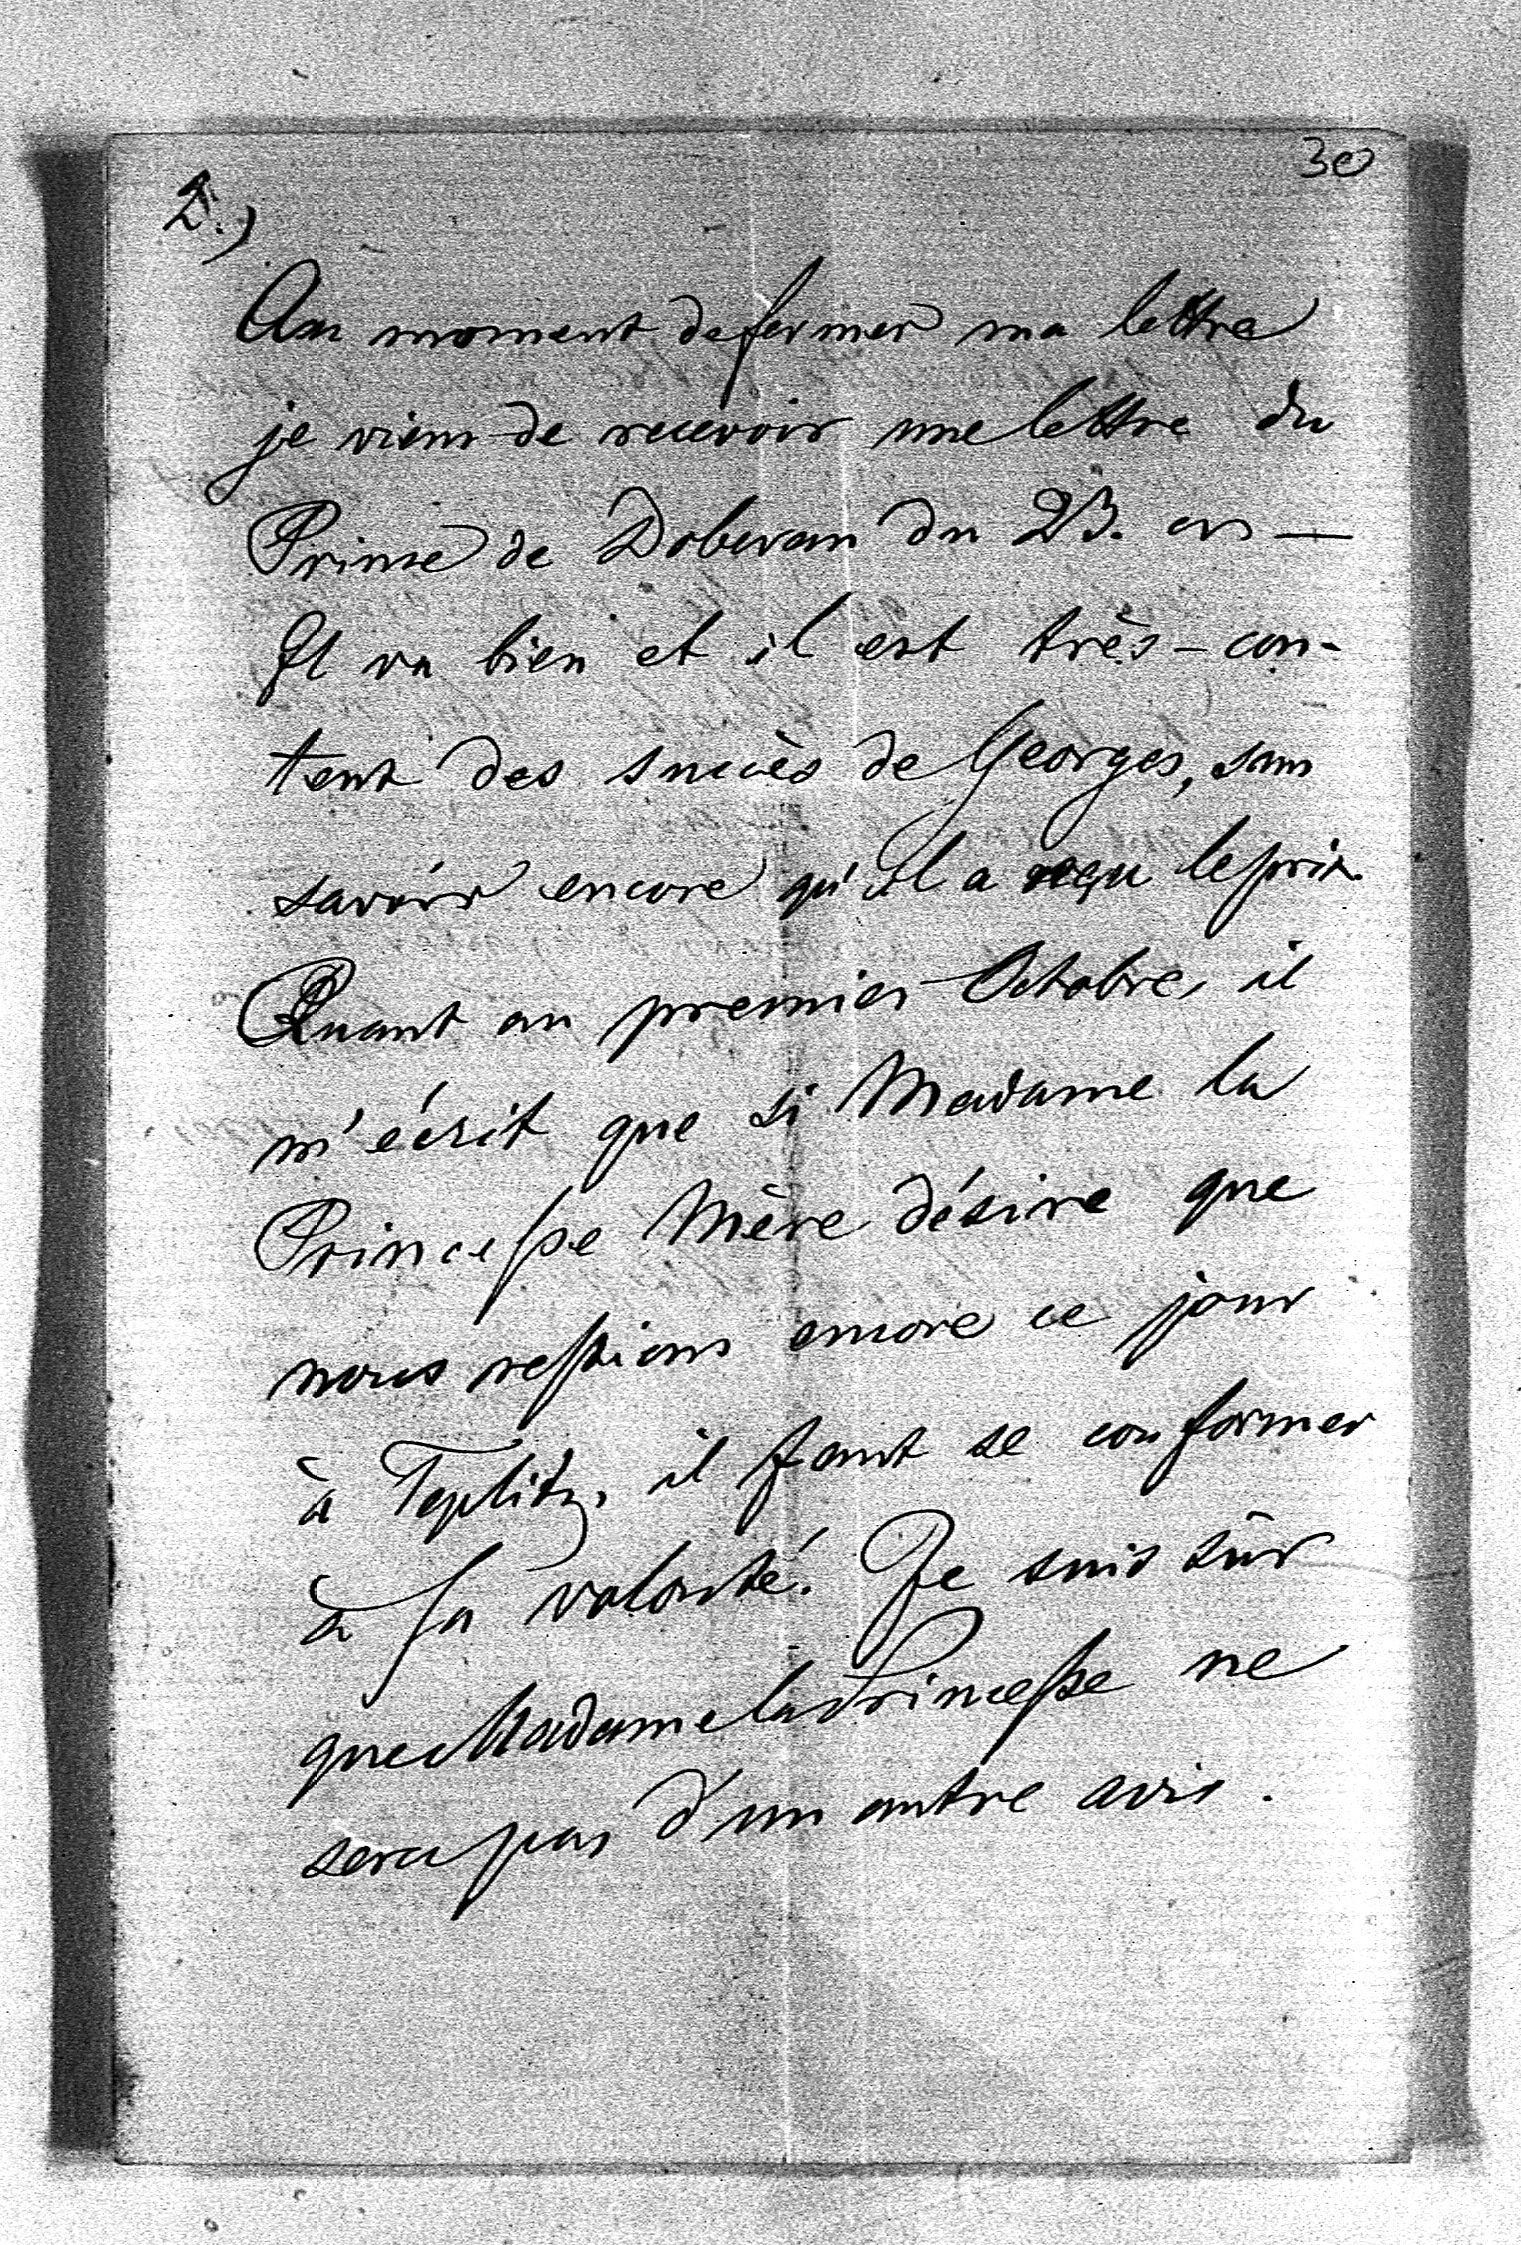 30
2.)
Au moment de fermer ma lettre
je viens de recevoir une lettre du
Prince de Doberan du 23. crs —
Il va bien et il est très-con-
tent des succès de Georges, sans
savoir encore qu'il a reçu le prix.
Quant au premier Octobre, il
m'écrit que si Madame la
Princesse Mère désire que
nous restions encore ce jour
à Teplitz, il faut se conformer
à Sa volonté. Je suis sûr
que Madame la Princesse ne
sera pas d'un autre avis.